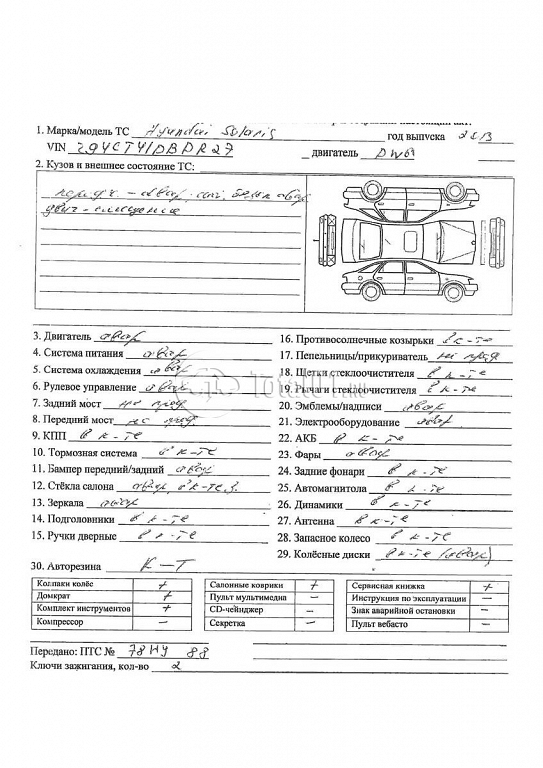 1. Марка/модель ТС Hyundai Solaris год выпуска 2013
VIN Z94CT41DBDR27 двигатель
2. Кузов и внешнее состояние ТС:
3. Двигатель авар
4. Система питания авар
5. Система охлаждения авар
6. Рулевое управление авар
7. Задний мост не пред
8. Передний мост не пред
9. КПП в к-те
10. Тормозная система в к-те
11. Бампер передний/задний авар
12. Стёкла салона авар, в к-те з.
13. Зеркала авар
14. Подголовники в к-те
15. Ручки дверные в к-те
16. Противосолнечные козырьки в к-те
17. Пепельницы/прикуриватель не пред
18. Щетки стеклоочистителя в к-те
19. Рычаги стеклоочистителя в к-те
20. Эмблемы/надписи авар
21. Электрооборудование авар
22. АКБ в к-те
23. Фары авар
24. Задние фонари в к-те
25. Автомагнитола в к-те
26. Динамики в к-те
27. Антенна в к-те
28. Запасное колесо в к-те
29. Колёсные диски в к-те (авар)
30. Авторезина К-Т
Колпаки колёс +
Домкрат +
Комплект инструментов +
Компрессор –
Салонные коврики +
Пульт мультимедиа –
CD-чейнджер –
Секретка –
Сервисная книжка +
Инструкция по эксплуатации –
Знак аварийной остановки –
Пульт вебасто –
Передано: ПТС № 78 НУ 88
Ключи зажигания, кол-во 2